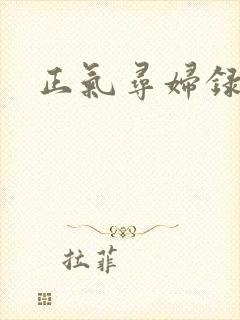 正氣尋婦録
拉菲